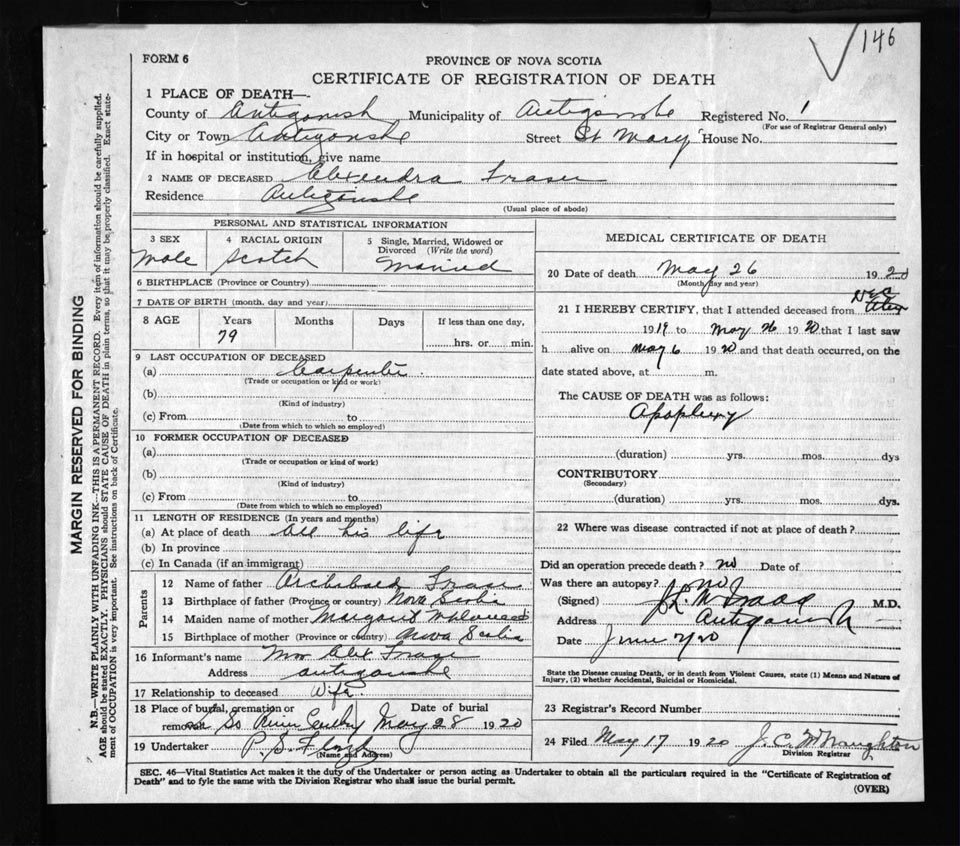 146
FORM 6
PROVINCE OF NOVA SCOTIA
CERTIFICATE OF REGISTRATION OF DEATH
1 PLACE OF DEATH—
County of Antigonish Municipality of Antigonishe Registered No. 1
(For use of Registrar General only)
City or Town Antigonishe Street St Mary House No.
If in hospital or institution, give name
2 NAME OF DECEASED Alexendra Fraser
Residence Antigonishe
(Usual place of abode)
PERSONAL AND STATISTICAL INFORMATION
3 SEX 4 RACIAL ORIGIN 5 Single, Married, Widowed or Divorced (Write the word)
Male Scotch Married
6 BIRTHPLACE (Province or Country)
7 DATE OF BIRTH (month, day and year)
8 AGE Years Months Days If less than one day,
79 hrs. or min.
9 LAST OCCUPATION OF DECEASED
(a) Carpenter
(Trade or occupation or kind or work)
(b)
(Kind of industry)
(c) From to
(Date from which to which so employed)
10 FORMER OCCUPATION OF DECEASED
(a)
(Trade or occupation or kind of work)
(b)
(Kind of industry)
(c) From to
(Date from which to which so employed)
11 LENGTH OF RESIDENCE (In years and months)
(a) At place of death All his life
(b) In province
(c) In Canada (if an immigrant)
Parents
12 Name of father Archibald Fraser
13 Birthplace of father (Province or country) Nova Scotia
14 Maiden name of mother Margaret
15 Birthplace of mother (Province or country) Nova Scotia
16 Informant's name Mrs Alex Fraser
Address Antigonishe
17 Relationship to deceased Wife
18 Place of burial, cremation or Date of burial
removal So River May 28 1920
19 Undertaker P. S. Floyd
(Name and Address)
MEDICAL CERTIFICATE OF DEATH
20 Date of death May 26 1920
(Month, day and year)
21 I HEREBY CERTIFY, that I attended deceased from Dec
1919 to May 26 1920 that I last saw
h alive on May 6 1920 and that death occurred, on the
date stated above, at m.
The CAUSE OF DEATH was as follows:
Apoplexy
(duration) yrs. mos. dys
CONTRIBUTORY
(Secondary)
(duration) yrs. mos. dys.
22 Where was disease contracted if not at place of death ?
Did an operation precede death ? no Date of
Was there an autopsy? no
(Signed) M.D.
Address Antigonish
Date June
State the Disease causing Death, or in death from Violent Causes, state (1) Means and Nature of
Injury, (2) whether Accidental, Suicidal or Homicidal.
23 Registrar's Record Number
24 Filed May 17 1920 J. C. McNaughton
Division Registrar
SEC. 46—Vital Statistics Act makes it the duty of the Undertaker or person acting as Undertaker to obtain all the particulars required in the "Certificate of Registration of
Death" and to fyle the same with the Division Registrar who shall issue the burial permit.
(OVER)
MARGIN RESERVED FOR BINDING
N.B.—WRITE PLAINLY WITH UNFADING INK—THIS IS A PERMANENT RECORD. Every item of information should be carefully supplied.
AGE should be stated EXACTLY. PHYSICIANS should STATE CAUSE OF DEATH in plain terms, so that it may be properly classified. Exact state-
ment of OCCUPATION is very important. See instructions on back of Certificate.